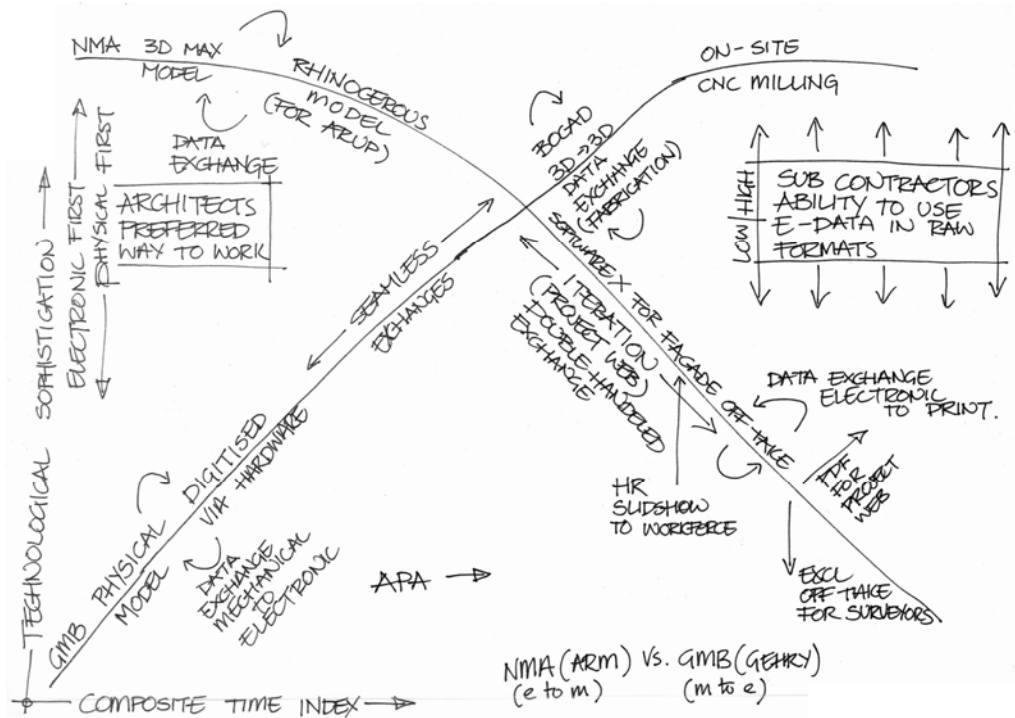 NMA 3D MAX
MODEL
RHINOCEROUS
MODEL
(FOR ARUP)
DATA
EXCHANGE
ARCHITECTS
PREFERRED
WAY TO WORK
ELECTRONIC FIRST
PHYSICAL FIRST
TECHNOLOGICAL SOPHISTICATION
ON-SITE
CNC MILLING
BOCAD
3D → 3D
DATA
EXCHANGE
(FABRICATION)
LOW/HIGH
SUB CONTRACTORS
ABILITY TO USE
E-DATA IN RAW
FORMATS
SEAMLESS
EXCHANGES
SOFTWARE X FOR FACADE OFF TAKE
ITERATION
(PROJECT WEB)
DOUBLE HANDELED
EXCHANGE
DATA EXCHANGE
ELECTRONIC
TO PRINT.
PROJECT
WEB
HR
SLIDSHOW
TO WORKFORCE
EXCL
OFF TAKE
FOR SURVEYORS
GMB
PHYSICAL
MODEL
DIGITISED
VIA HARDWARE
DATA
EXCHANGE
MECHANICAL
TO
ELECTRONIC
APA →
NMA (ARM) VS. GMB (GEHRY)
(e to m) (m to e)
COMPOSITE TIME INDEX